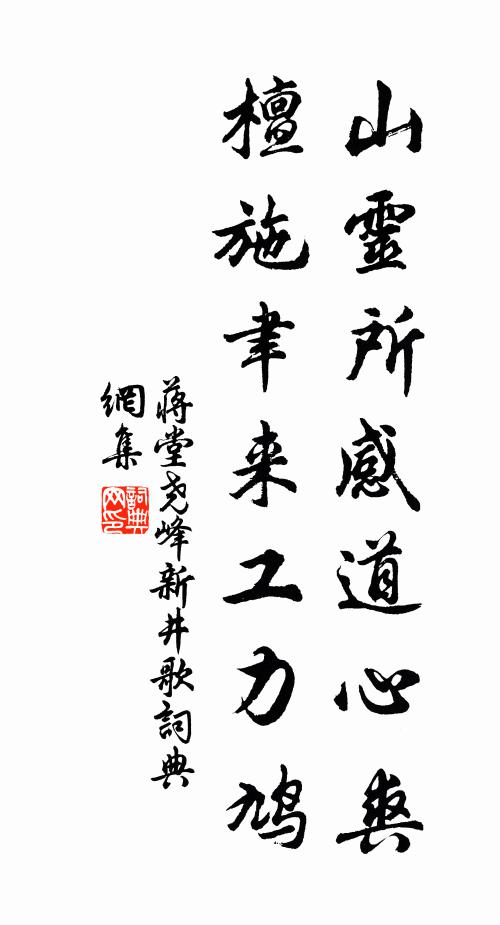 山靈所感道心爽
檀施聿来工力鸠
蔣堂尧峰新井歌詞典
網集
詞典
网印